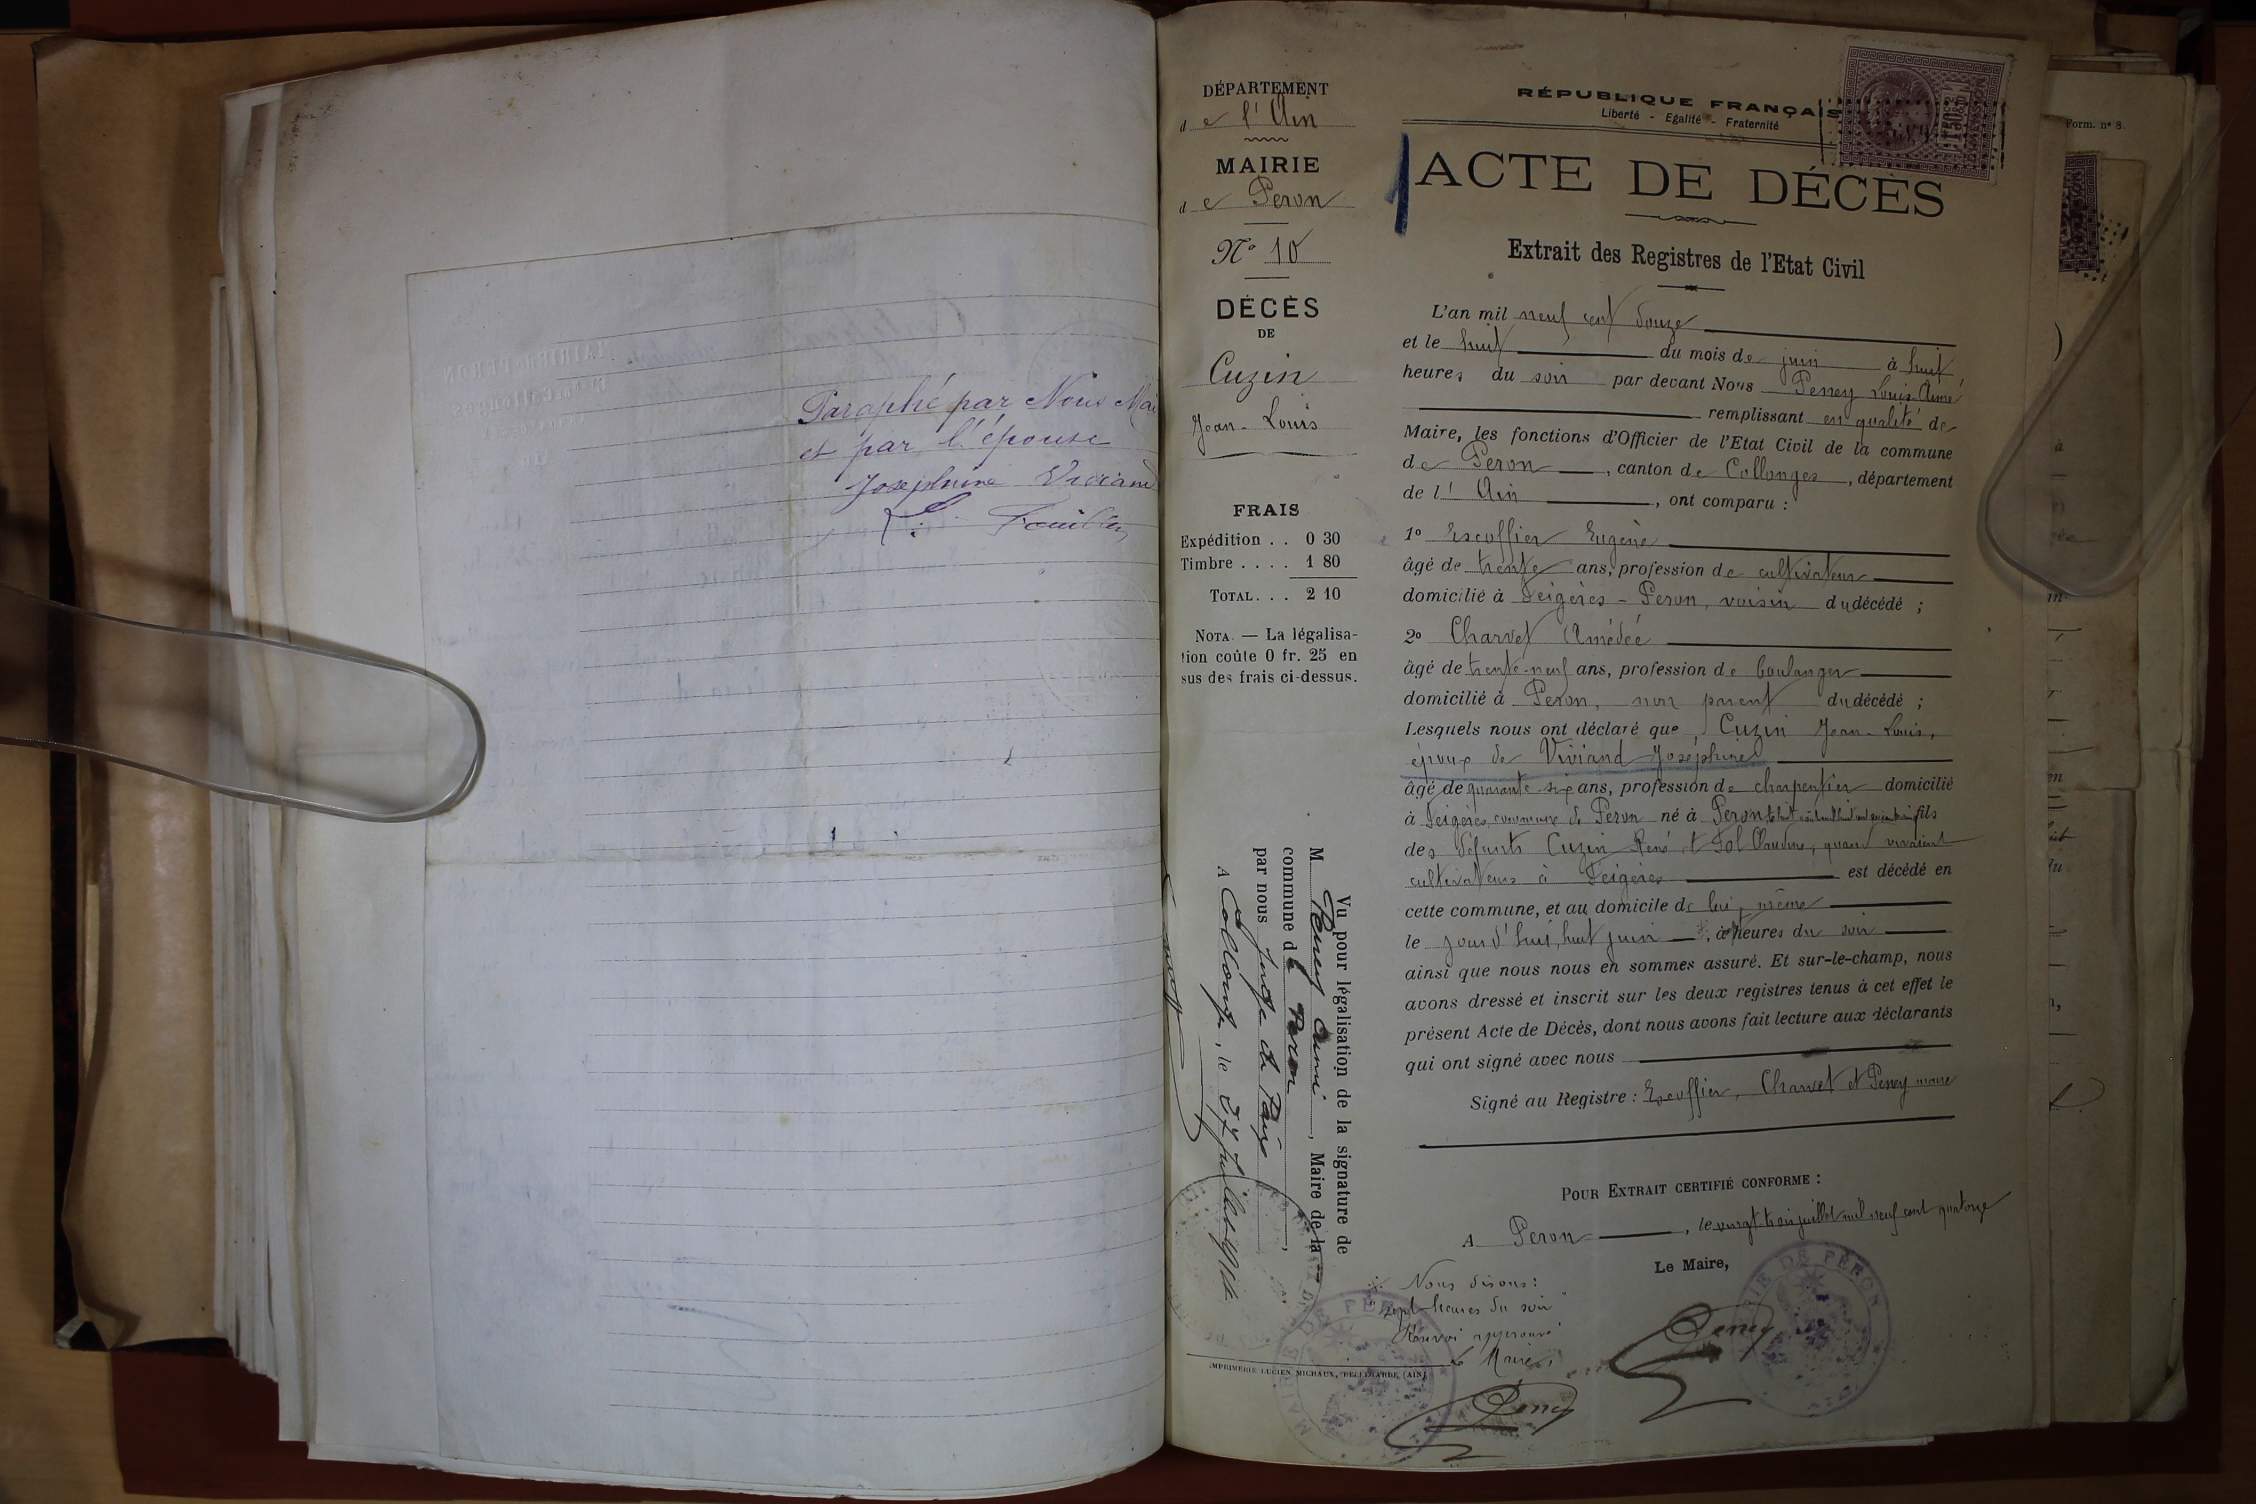 Paraphé par Nous Mai
et par l'épouse
Joséphine Viviand
DÉPARTEMENT
de l'Ain
MAIRIE
de Peron
N° 10
DÉCÈS
DE
Cuzin
Jean-Louis
FRAIS
Expédition . . 0 30
Timbre . . . . 1 80
TOTAL. . . 2 10
NOTA. — La légalisa-
tion coûte 0 fr. 25 en
sus des frais ci-dessus.
Vu pour légalisation de la signature de
M Perrey Aimé, Maire de la
commune de Peron,
par nous Juge de Paix
A Collonges, le 27 juillet 1914
IMPRIMERIE LUCIEN MICHAUX, BELLEGARDE (AIN)
RÉPUBLIQUE FRANÇAIS
Liberté - Egalité - Fraternité
ACTE DE DÉCÈS
Extrait des Registres de l'Etat Civil
L'an mil neuf cent douze
et le huit du mois de juin à huit
heures du soir par devant Nous Perrey Louis Aimé
remplissant en qualité de
Maire, les fonctions d'Officier de l'Etat Civil de la commune
de Peron, canton de Collonges, département
de l'Ain, ont comparu :
1° Escoffier Eugène
âgé de trente ans, profession de cultivateur
domicilié à Feigères - Peron, voisin du décédé ;
2° Charvet Amédée
âgé de trente-neuf ans, profession de boulanger
domicilié à Peron, non parent du décédé ;
Lesquels nous ont déclaré que Cuzin Jean-Louis,
époux de Viviand Joséphine
âgé de quarante-six ans, profession de charpentier domicilié
à Feigères, commune de Peron né à Peron fils
des défunts Cuzin René et Fol Claudine, quand vivaient
cultivateurs à Feigères est décédé en
cette commune, et au domicile de lui-même
le jour d'hui, huit juin, à heures du soir
ainsi que nous nous en sommes assuré. Et sur-le-champ, nous
avons dressé et inscrit sur les deux registres tenus à cet effet le
présent Acte de Décès, dont nous avons fait lecture aux déclarants
qui ont signé avec nous
Signé au Registre : Escoffier, Charvet et Perrey maire
POUR EXTRAIT CERTIFIÉ CONFORME :
A Peron, le vingt-trois juillet mil neuf cent quatorze
Le Maire,
Nous disons :
"sept heures du soir"
Renvoi approuvé
Le Maire,
Perrey
Perrey
MAIRIE DE PÉRON
MAIRIE DE PÉRON
Form. n° 8.